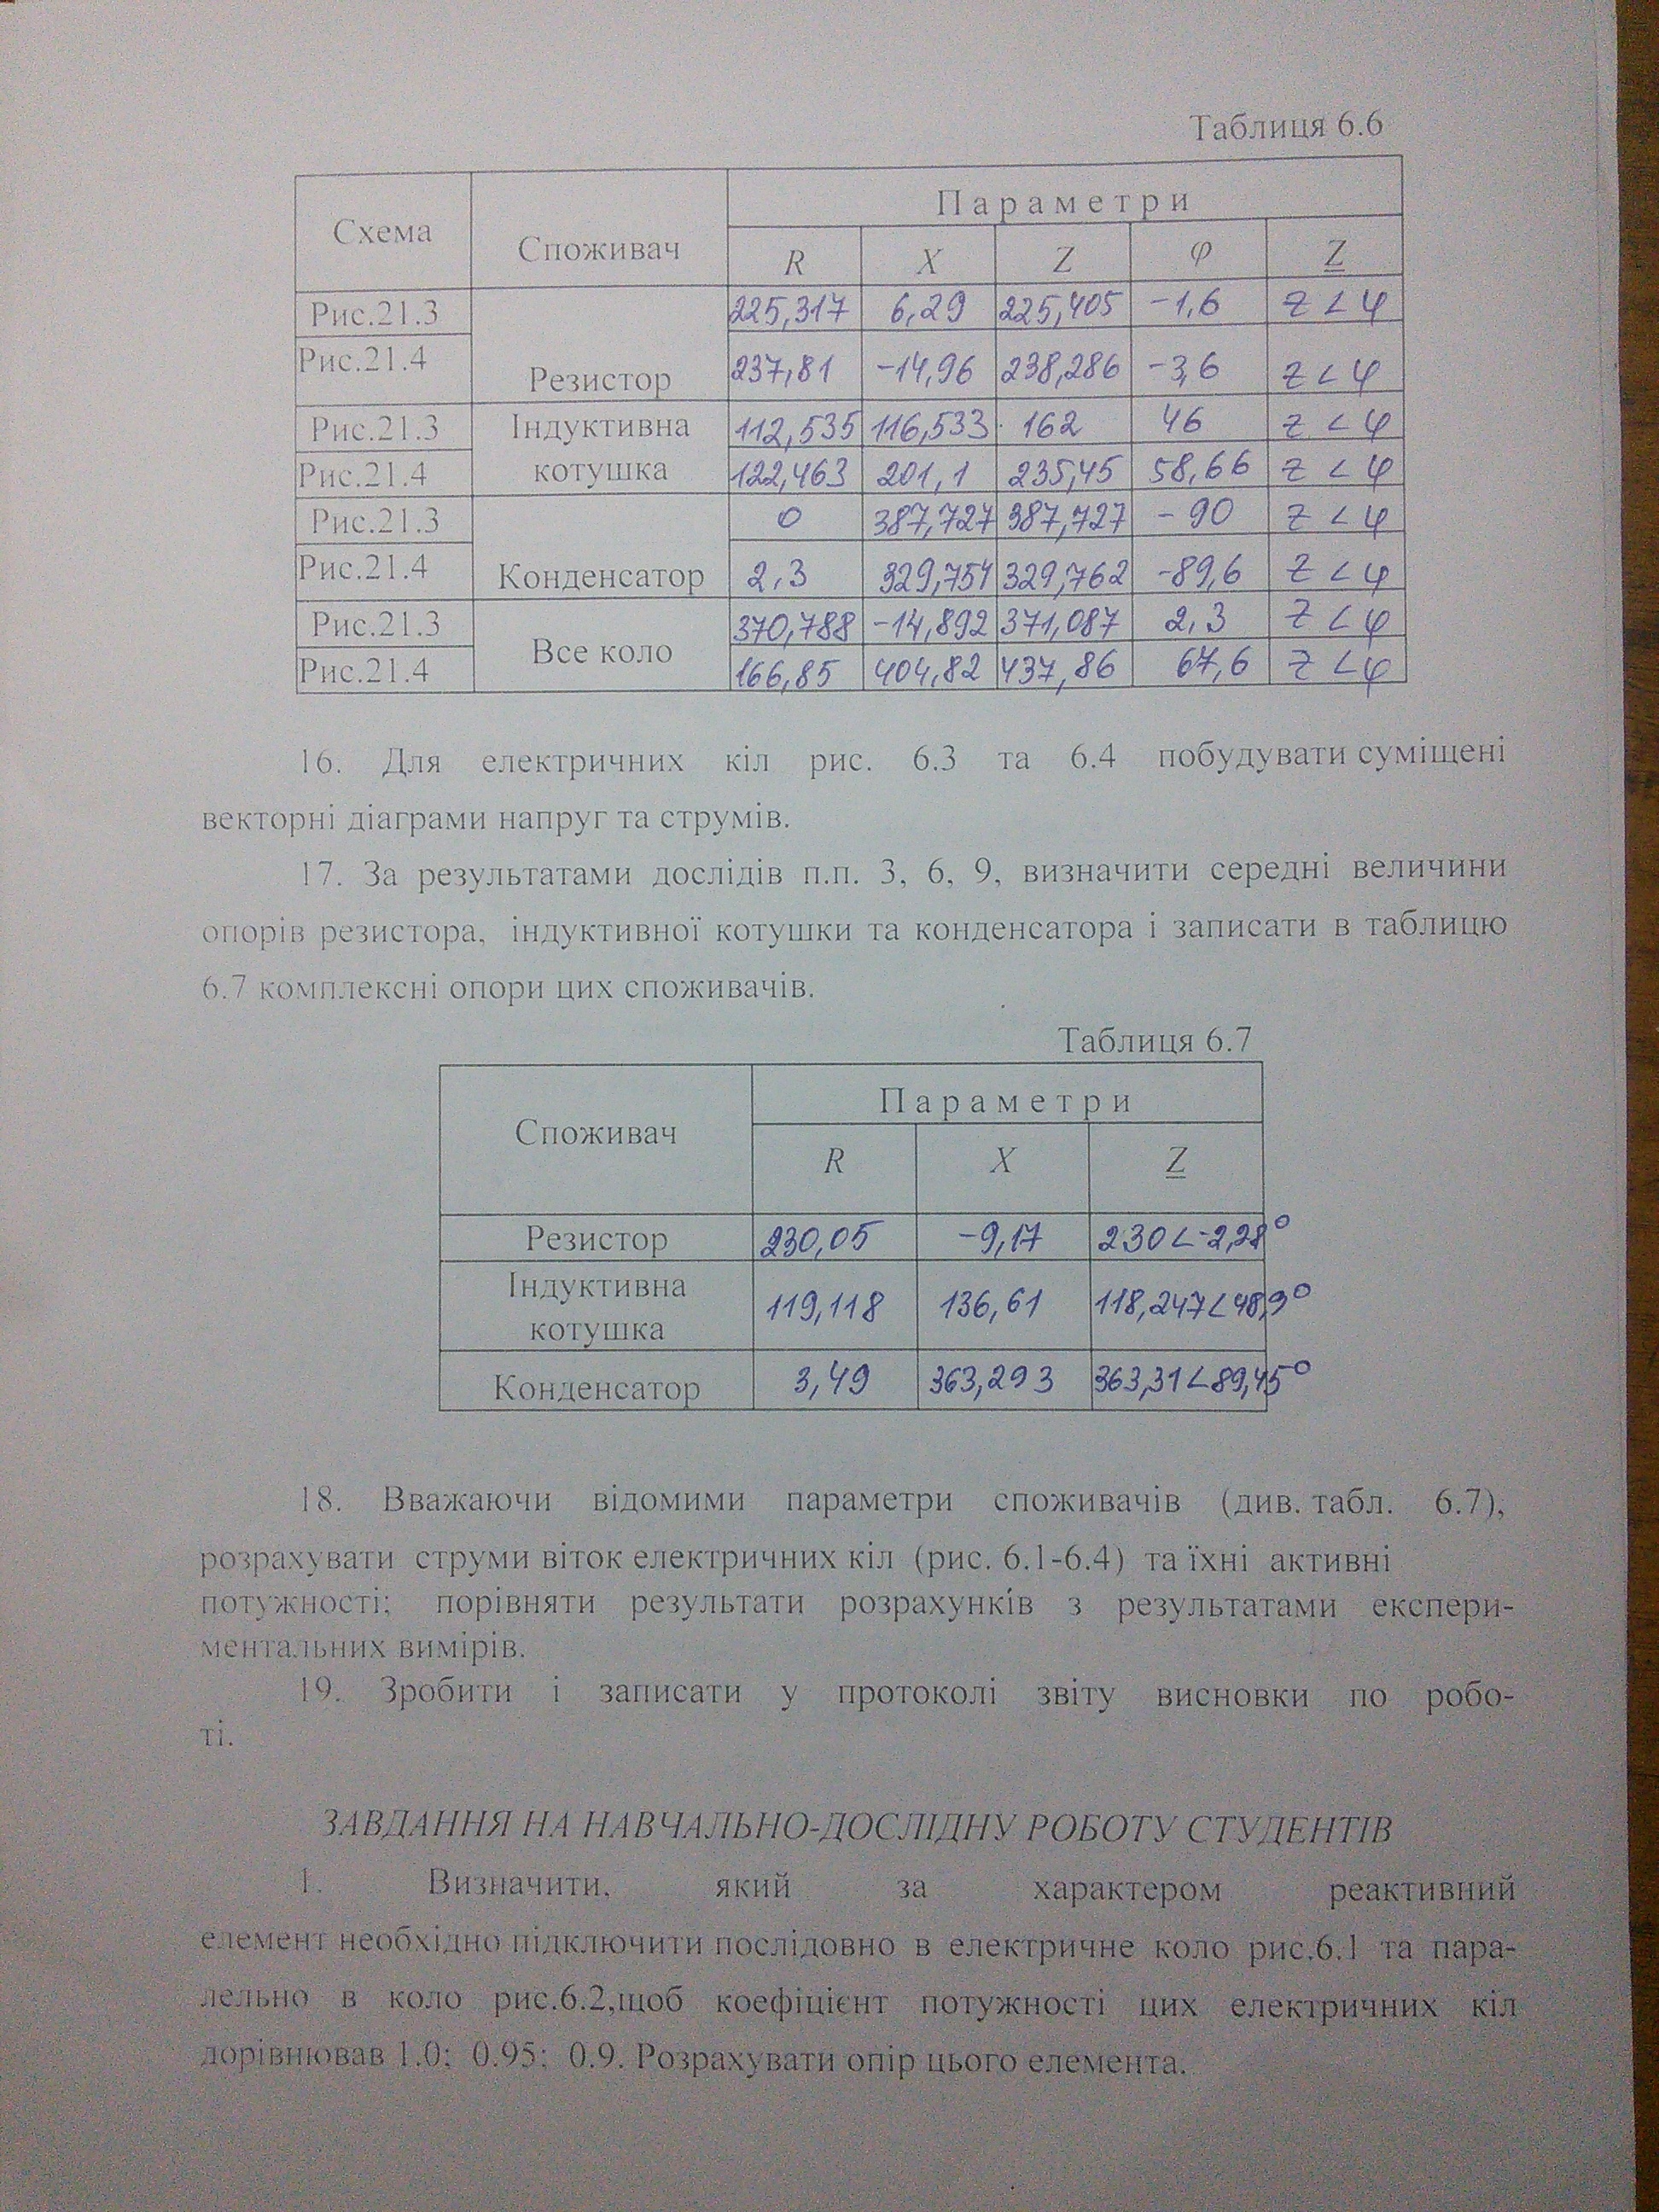 Таблиця 6.6
Схема Споживач Параметри
R X Z φ Z
Рис.21.3 225,317 6,29 225,405 -1,6 Z < φ
Рис.21.4 Резистор 237,81 -14,96 238,286 -3,6 Z < φ
Рис.21.3 Індуктивна 112,535 116,533 162 46 Z < φ
Рис.21.4 котушка 122,463 201,1 235,45 58,66 Z < φ
Рис.21.3 0 387,727 387,727 - 90 Z < φ
Рис.21.4 Конденсатор 2,3 329,754 329,762 -89,6 Z < φ
Рис.21.3 370,788 -14,892 371,087 2,3 Z < φ
Все коло
Рис.21.4 166,85 404,82 437,86 67,6 Z < φ
16. Для електричних кіл рис. 6.3 та 6.4 побудувати суміщені
векторні діаграми напруг та струмів.
17. За результатами дослідів п.п. 3, 6, 9, визначити середні величини
опорів резистора, індуктивної котушки та конденсатора і записати в таблицю
6.7 комплексні опори цих споживачів.
Таблиця 6.7
Споживач Параметри
R X Z
Резистор 230,05 -9,17 230<-2,28°
Індуктивна
котушка 119,118 136,61 118,247<48,9°
Конденсатор 3,49 363,293 363,31<89,45°
18. Вважаючи відомими параметри споживачів (див. табл. 6.7),
розрахувати струми віток електричних кіл (рис. 6.1-6.4) та їхні активні
потужності; порівняти результати розрахунків з результатами експери-
ментальних вимірів.
19. Зробити і записати у протоколі звіту висновки по робо-
ті.
ЗАВДАННЯ НА НАВЧАЛЬНО-ДОСЛІДНУ РОБОТУ СТУДЕНТІВ
1. Визначити, який за характером реактивний
елемент необхідно підключити послідовно в електричне коло рис.6.1 та пара-
лельно в коло рис.6.2,щоб коефіцієнт потужності цих електричних кіл
дорівнював 1.0; 0.95; 0.9. Розрахувати опір цього елемента.